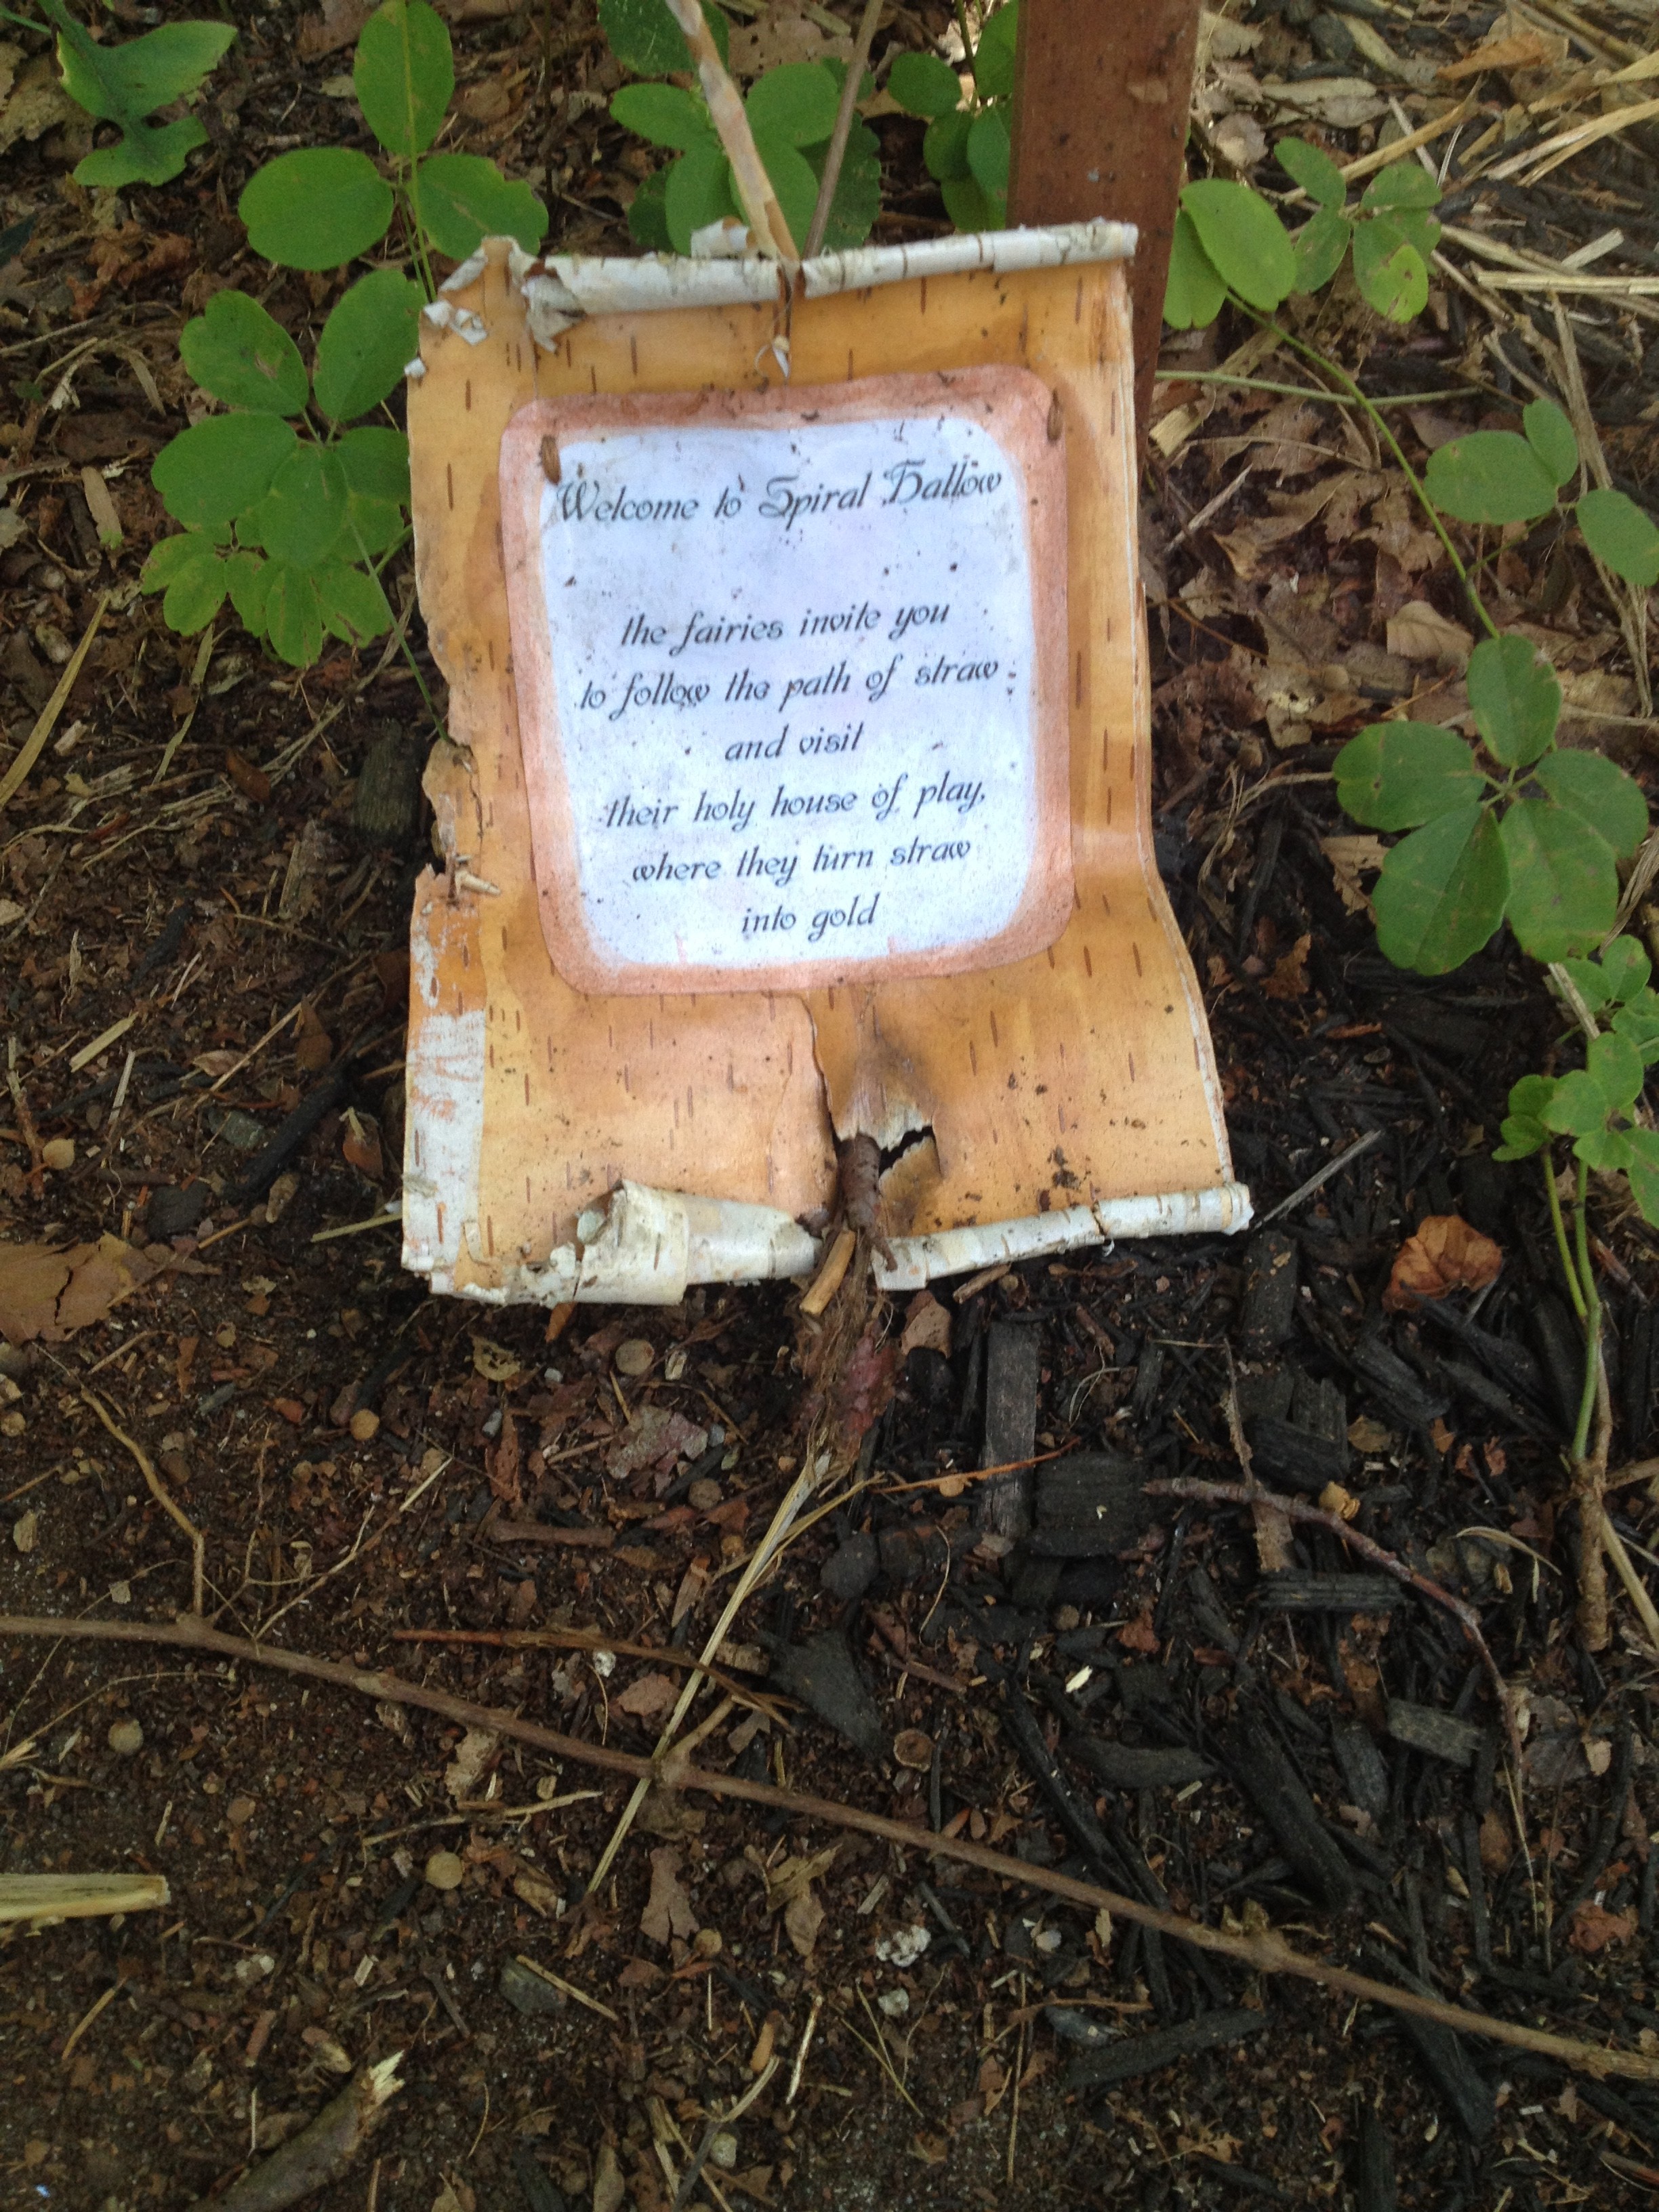 Welcome to Spiral Hallow
the fairies invite you
to follow the path of straw
and visit
their holy house of play,
where they turn straw
into gold